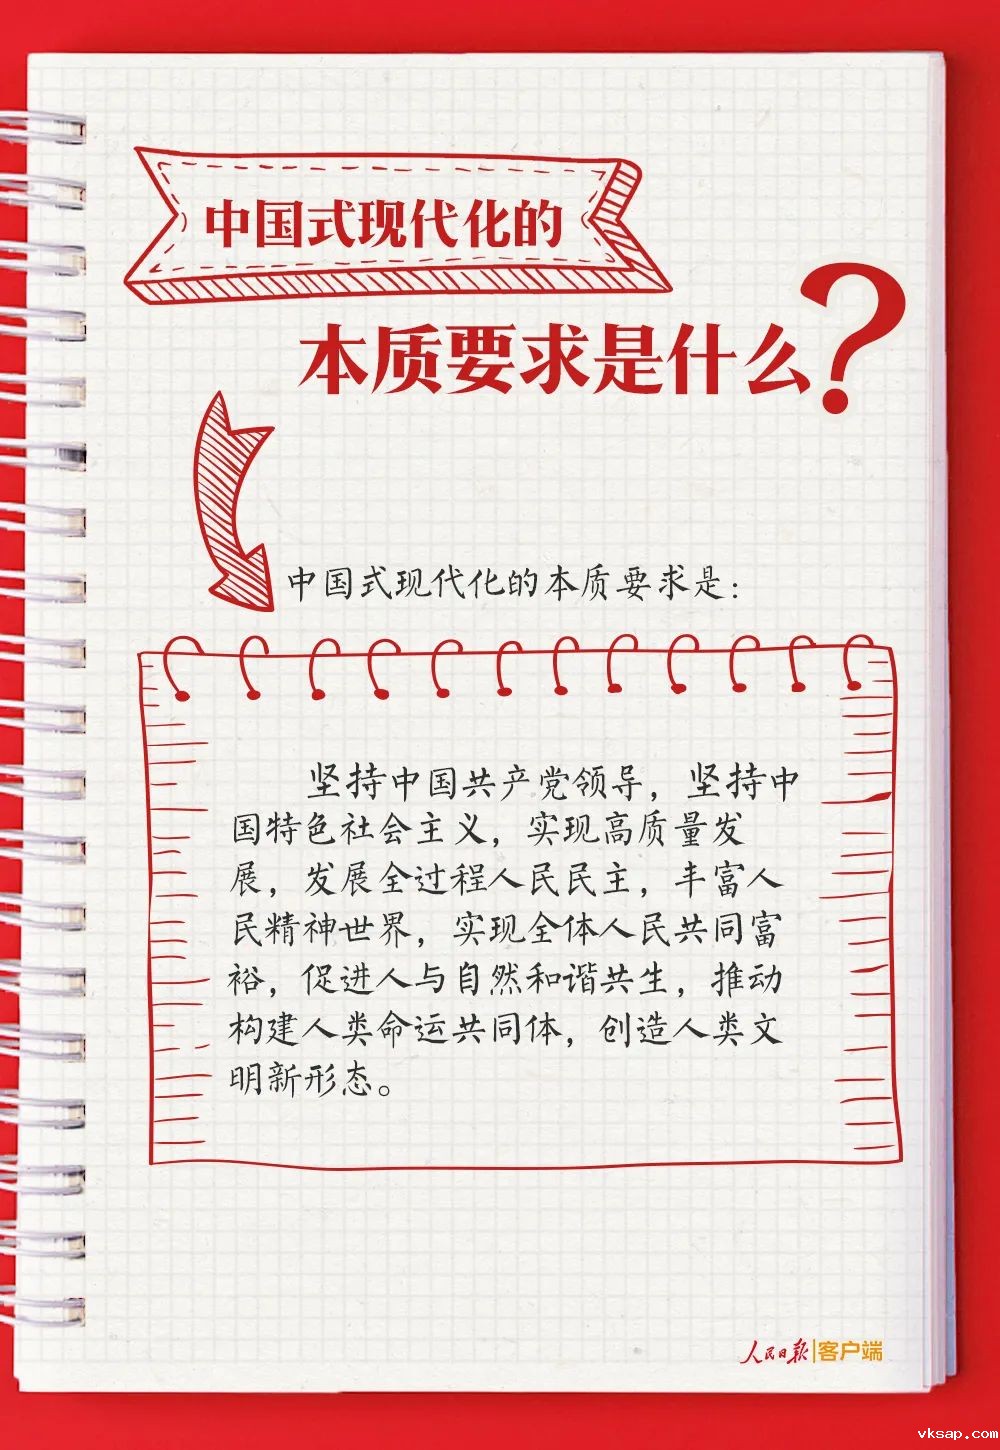 中国式现代化的
本质要求是什么?
中国式现代化的本质要求是：
坚持中国共产党领导，坚持中
国特色社会主义，实现高质量发
展，发展全过程人民民主，丰富人
民精神世界，实现全体人民共同富
裕，促进人与自然和谐共生，推动
构建人类命运共同体，创造人类文
明新形态。
人民日报|客户端
vksap.com